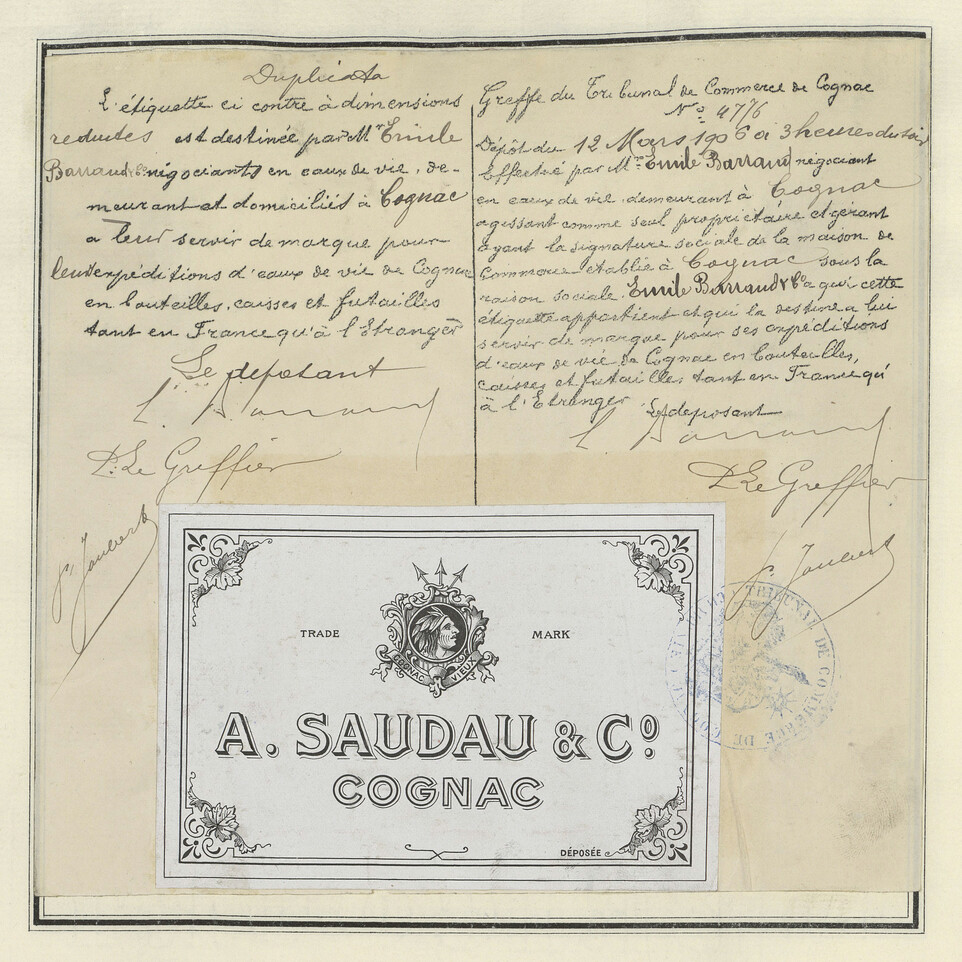 Duplicata
L'étiquette ci contre à dimensions
reduites est destinée par Mr Emile
Barraud & Co négociants en eaux de vie, de-
meurant et domiciliés à Cognac
a leur servir de marque pour
leurs expéditions d'eaux de vie de Cognac
en bouteilles, caisses et futailles
tant en France qu'à l'Etranger
Le déposant
E. Barraud
P. Le Greffier
Joubert
Greffe du Tribunal de Commerce de Cognac
No 4776
Dépôt du 12 Mars 1906 à 3 heures du soir
Effectué par Mr Emile Barraud négociant
en eaux de vie demeurant à Cognac
agissant comme seul propriétaire et gérant
ayant la signature sociale de la maison de
Commerce établie à Cognac sous la
raison sociale Emile Barraud & Co a qui cette
étiquette appartient et qui la destine a lui
servir de marque pour ses expéditions
d'eaux de vie de Cognac en bouteilles,
caisses et futailles tant en France qu'
à l'Etranger Le déposant
E. Barraud
P. Le Greffier
Joubert
TRIBUNAL DE COMMERCE DE COGNAC
TRADE MARK
COGNAC VIEUX
A. SAUDAU & Co
COGNAC
DÉPOSÉE